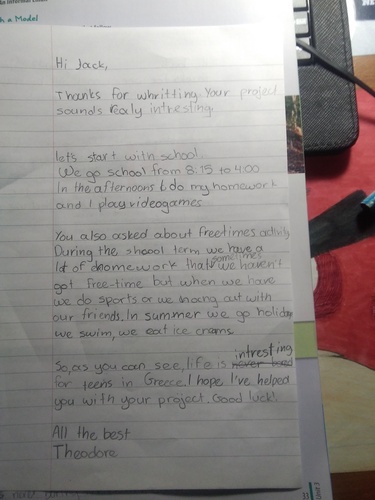 h a Model
Hi Jack,
Thanks for whritting. Your project
sounds realy intresting
let's start with school.
We go school from 8:15 to 4:00
In the afternoons I do my homework
and I play videogames
You also asked about freetimes activity
During the shoool term we have a
lot of homework that sometimes we haven't
got free-time but when we have
we do sports or we hang out with
our friends. In summer we go holiday
we swim, we eat ice creams.
So, as you can see, life is intresting
for teens in Greece. I hope I've helped
you with your project. Good luck!
All the best
Theodore